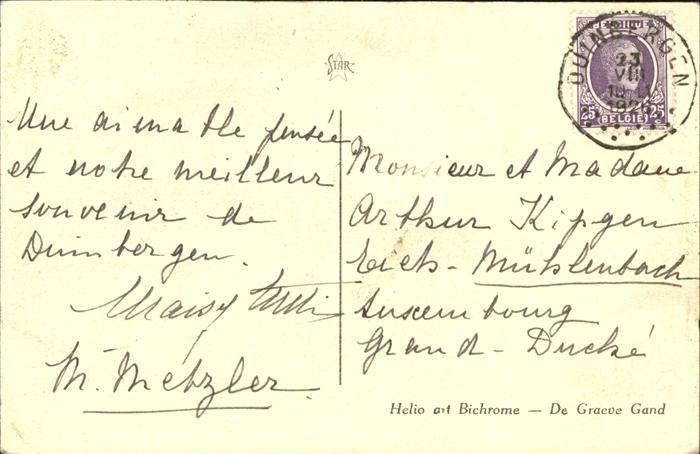 STAR
BELGIQUE
DUINBERGEN
23
VIII
1926
25 BELGIE 25
Une aimable pensée
et notre meilleur
souvenir de
Duinbergen.
Maisy
M. Metzler.
Monsieur et Madame
Arthur Kipgen
Eich - Mühlenbach
Luxembourg
Grand - Duché
Helio art Bichrome — De Graeve Gand